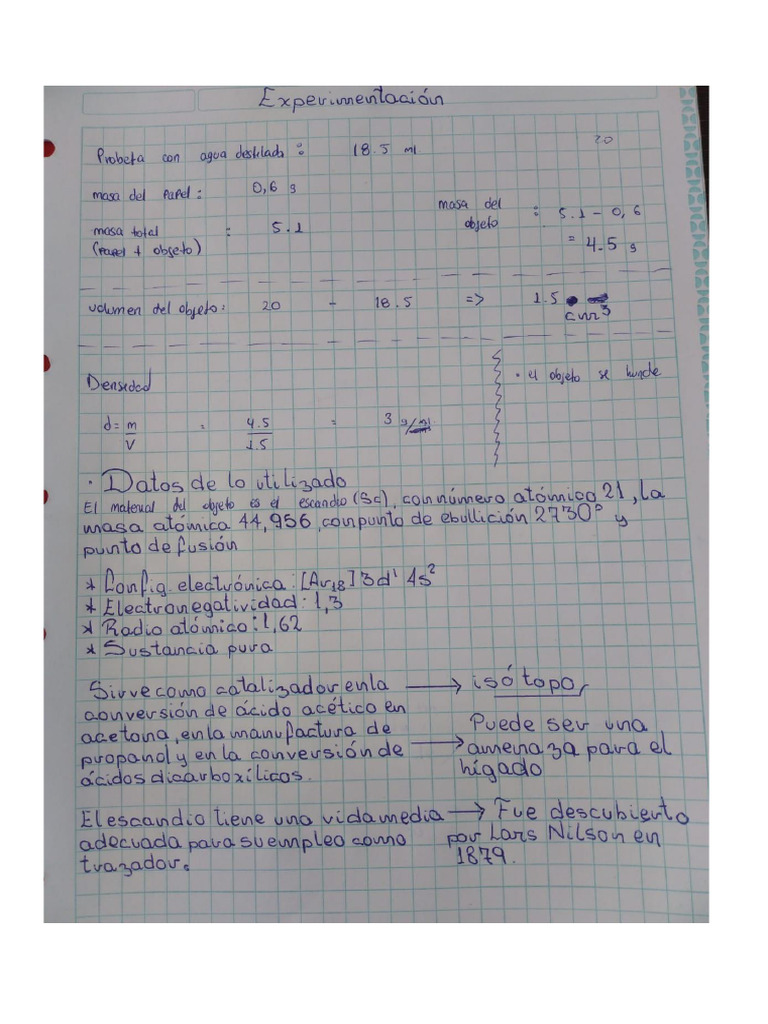 Experimentación
20
Probeta con agua destilada : 18.5 ml
masa del Papel : 0,6 g
masa del objeto : 5.1 - 0,6
= 4.5 g
masa total : 5.1
(Papel + objeto)
volumen del objeto: 20 - 18.5 => 1.5
cm³
Densidad
• el objeto se hunde
d = m/V = 4.5/1.5 = 3 g/ml
• Datos de lo utilizado
El material del objeto es el escandio (Sc), con número atómico 21, la
masa atómica 44,956, con punto de ebullición 2730° y
punto de fusión
* Config. electrónica: [Ar18] 3d¹ 4s²
* Electronegatividad: 1,3
* Radio atómico: 1,62
* Sustancia pura
Sirve como catalizador en la → isótopo,
conversión de ácido acético en
acetona, en la manufactura de
propanol y en la conversión de
ácidos dicarboxílicos.
→ Puede ser una
amenaza para el
hígado
El escandio tiene una vida media
adecuada para su empleo como
trazador.
→ Fue descubierto
por Lars Nilson en
1879.